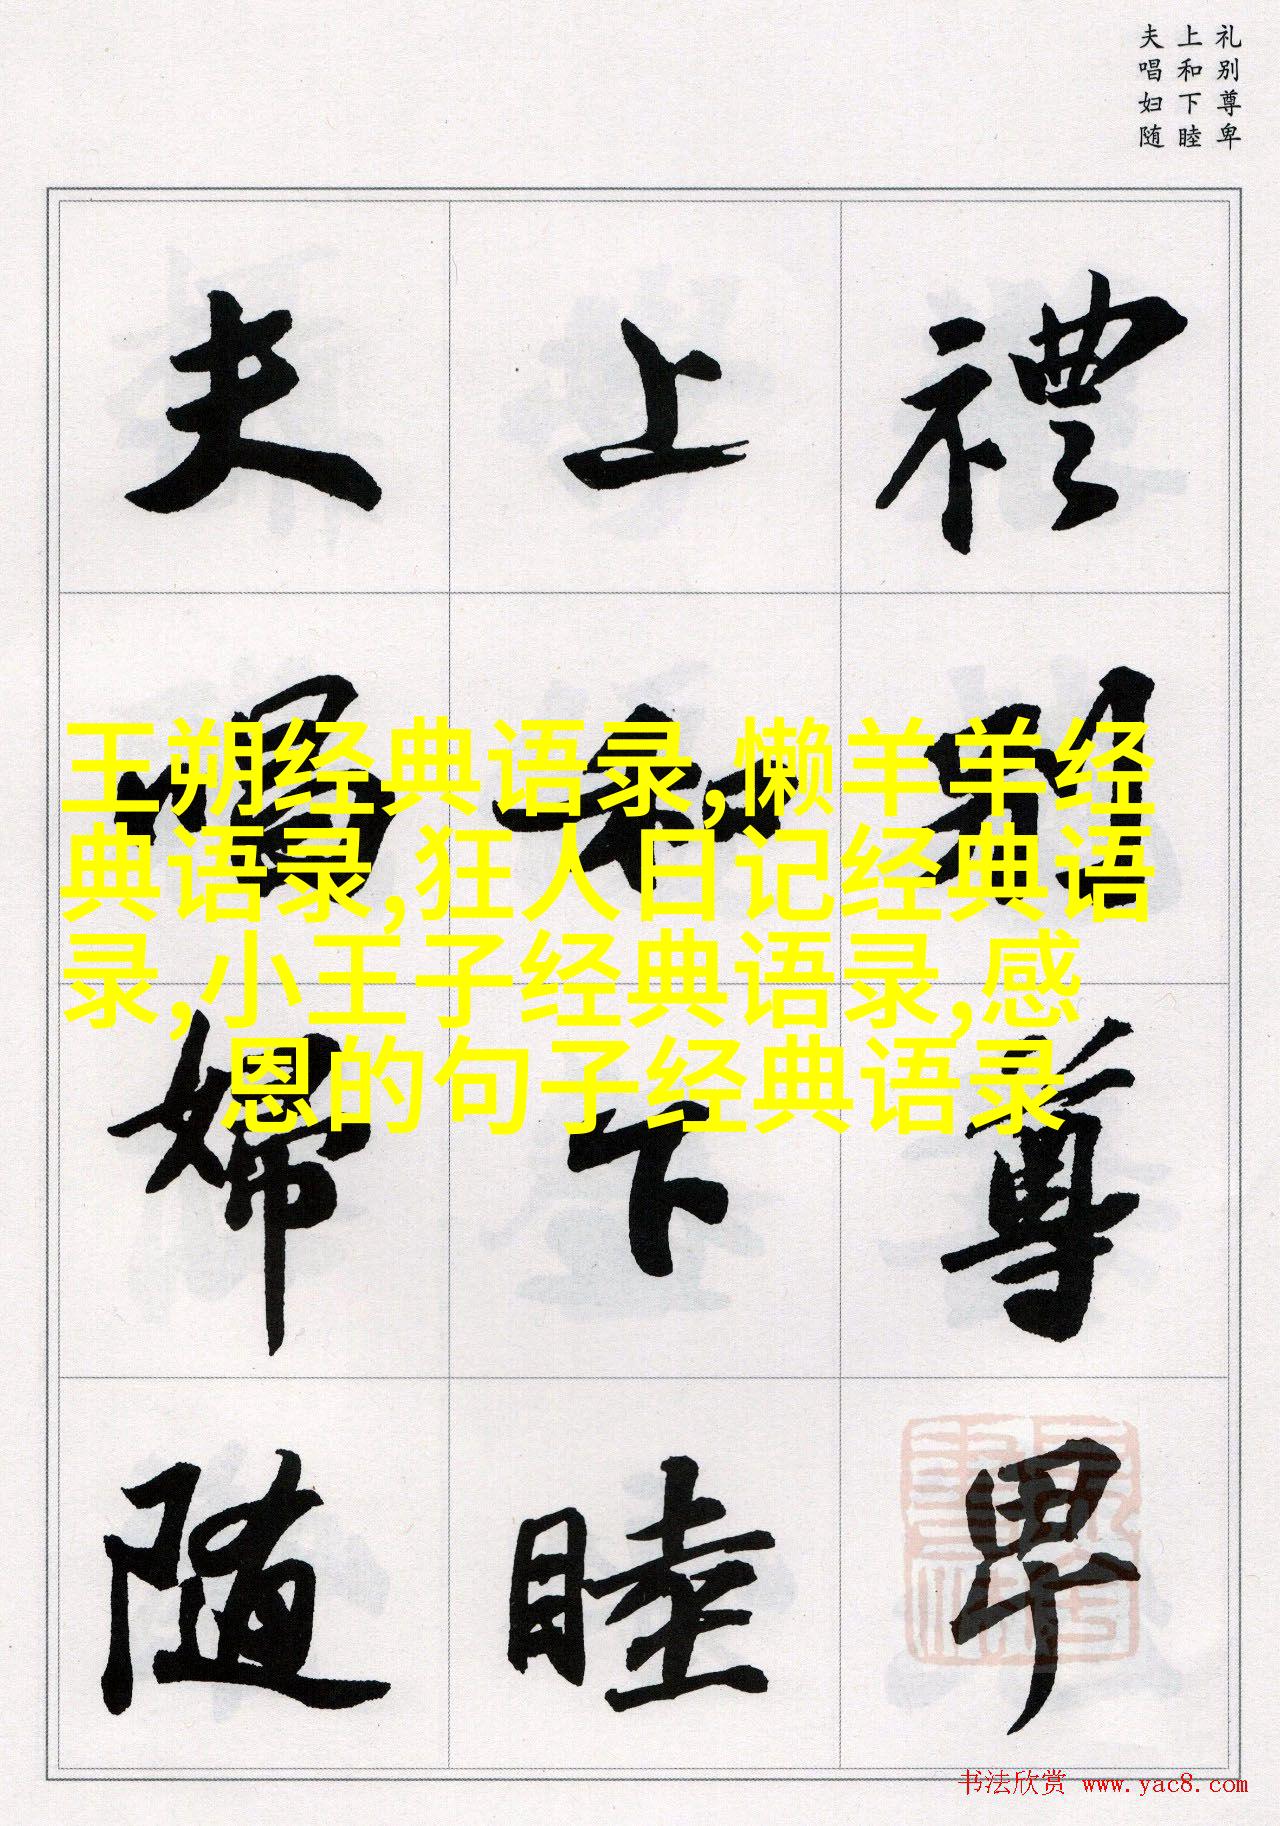 礼别尊卑
上和下睦
夫唱妇随
禮别尊卑
上和下睦
夫唱婦随
王朔经典语录,懒羊羊经
典语录,狂人日记经典语
录,小王子经典语录,感
恩的句子经典语录
书法欣赏 www.yac8.com